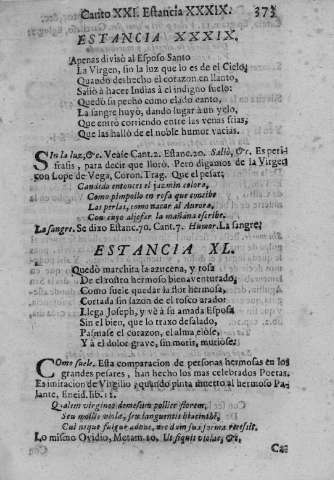 Canto XXI. Estancia XXXIX. 373
ESTANCIA XXXIX.
Apenas divisò al Esposo Santo
La Virgen, sin la luz que lo es de el Cielo,
Quando deshecho el corazon en llanto,
Saliò à hacer Indias à el indigno suelo:
Quedò su pecho como elado canto,
La sangre huyò, dando lugar à un yelo,
Que entrò corriendo entre las venas frias,
Que las hallò de el noble humor vacias.
Sin la luz, &c. Vease Cant. 2. Estanc. 20. Saliò, &c. Es peri-
frasis, para decir que llorò. Pero digamos de la Virgen
con Lope de Vega, Coron. Trag. Que el pesar;
Candido entonces el jazmin colora,
Como pimpollo en rosa que concibe
Las perlas, como nacar al Aurora,
Con cuyo aljofar la mañana escribe.
La sangre. Se dixo Estanc. 70. Cant. 7. Humor. La sangre.
ESTANCIA XL.
Quedò marchita la azucena, y rosa
De el rostro hermoso bienaventurado,
Como suele quedar la flor hermosa,
Cortada sin sazon de el rosco arado:
Llega Joseph, y vè à su amada Esposa
Sin el bien, que lo traxo desalado,
Pasmase el corazon, el alma gime,
Y à el dolor grave, sin morir, muriose.
Como suele. Esta comparacion de personas hermosas en los
grandes pesares, han hecho los mas celebrados Poetas.
Es imitacion de Virgilio quando pinta muerto al hermoso Pa-
lante, Eneid. lib. 11.
Qualem virgineo demessum pollice florem,
Seu mollis violæ, seu languentis hiacinthi,
Cui neque fulgor adhuc, nec dum sua forma recessit.
Lo mismo Ovidio, Metam. 10. Ut siquis violas, &c.